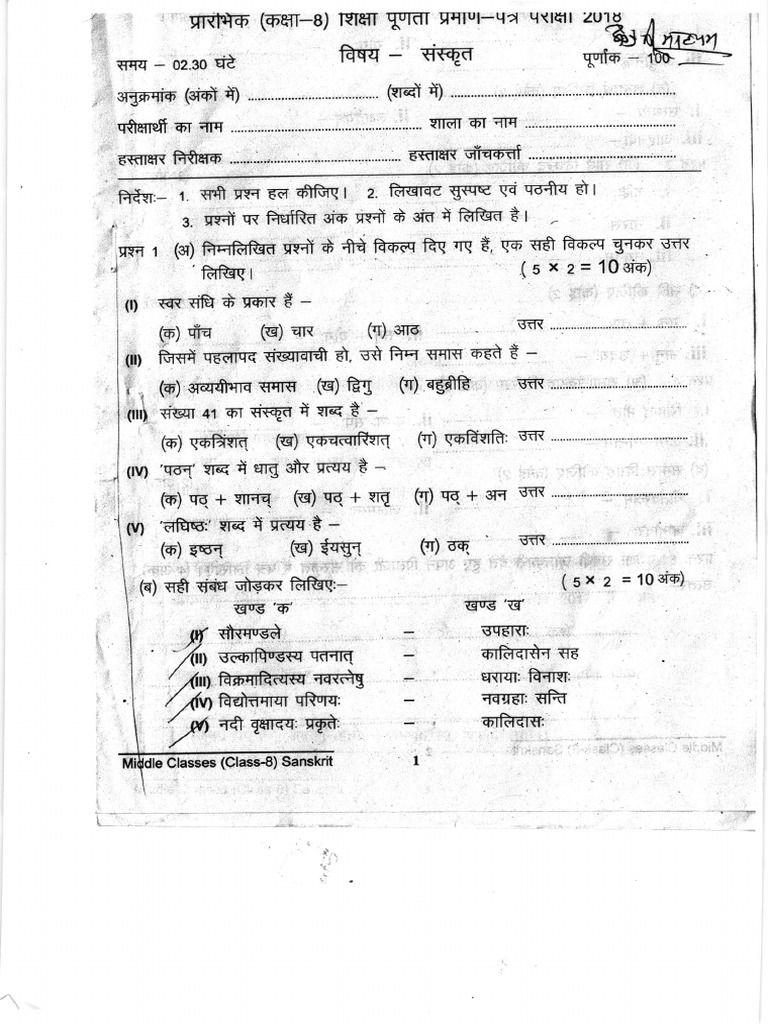 प्रारंभिक (कक्षा–8) शिक्षा पूर्णता प्रमाण–पत्र परीक्षा 2018
माध्यम
समय – 02.30 घंटे विषय – संस्कृत पूर्णांक – 100
अनुक्रमांक (अंकों में) ............................ (शब्दों में) ............................
परीक्षार्थी का नाम ............................ शाला का नाम ............................
हस्ताक्षर निरीक्षक ............................ हस्ताक्षर जाँचकर्त्ता ............................
निर्देशः– 1. सभी प्रश्न हल कीजिए। 2. लिखावट सुस्पष्ट एवं पठनीय हो।
3. प्रश्नों पर निर्धारित अंक प्रश्नों के अंत में लिखित है।
प्रश्न 1 (अ) निम्नलिखित प्रश्नों के नीचे विकल्प दिए गए हैं, एक सही विकल्प चुनकर उत्तर
लिखिए। ( 5 × 2 = 10 अंक)
(I) स्वर संधि के प्रकार हैं –
(क) पाँच (ख) चार (ग) आठ उत्तर ............................
(II) जिसमें पहलापद संख्यावाची हो, उसे निम्न समास कहते हैं –
(क) अव्ययीभाव समास (ख) द्विगु (ग) बहुब्रीहि उत्तर ............................
(III) संख्या 41 का संस्कृत में शब्द है –
(क) एकत्रिंशत् (ख) एकचत्वारिंशत् (ग) एकविंशतिः उत्तर ............................
(IV) 'पठन्' शब्द में धातु और प्रत्यय है –
(क) पठ् + शानच् (ख) पठ् + शतृ (ग) पठ् + अन उत्तर ............................
(V) 'लघिष्ठः' शब्द में प्रत्यय है –
(क) इष्ठन् (ख) ईयसुन् (ग) ठक् उत्तर ............................
(ब) सही संबंध जोड़कर लिखिएः– ( 5 × 2 = 10 अंक)
खण्ड 'क' खण्ड 'ख'
(I) सौरमण्डले – उपहाराः
(II) उल्कापिण्डस्य पतनात् – कालिदासेन सह
(III) विक्रमादित्यस्य नवरत्नेषु – धरायाः विनाशः
(IV) विद्योत्तमाया परिणयः – नवग्रहाः सन्ति
(V) नदी वृक्षादयः प्रकृतेः – कालिदासः
Middle Classes (Class-8) Sanskrit 1